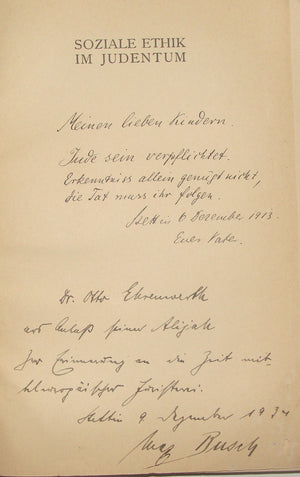 SOZIALE ETHIK
IM JUDENTUM
Meinen lieben Kindern.
Jude sein verpflichtet.
Erkenntniss allein genügt nicht,
die Tat muss ihr folgen.
Stettin 6 Dezember 1913.
Euer Vater.
Dr. Otto Ehrenwerth
aus Anlaß seiner Alijah
Zur Erinnerung an die Zeit mit-
teleuropäischer
Stettin 9 Dezember 193
Busch